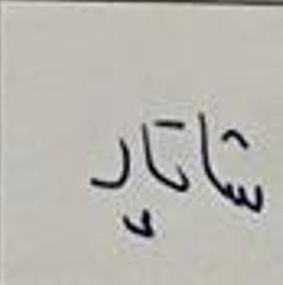 شاتاپر